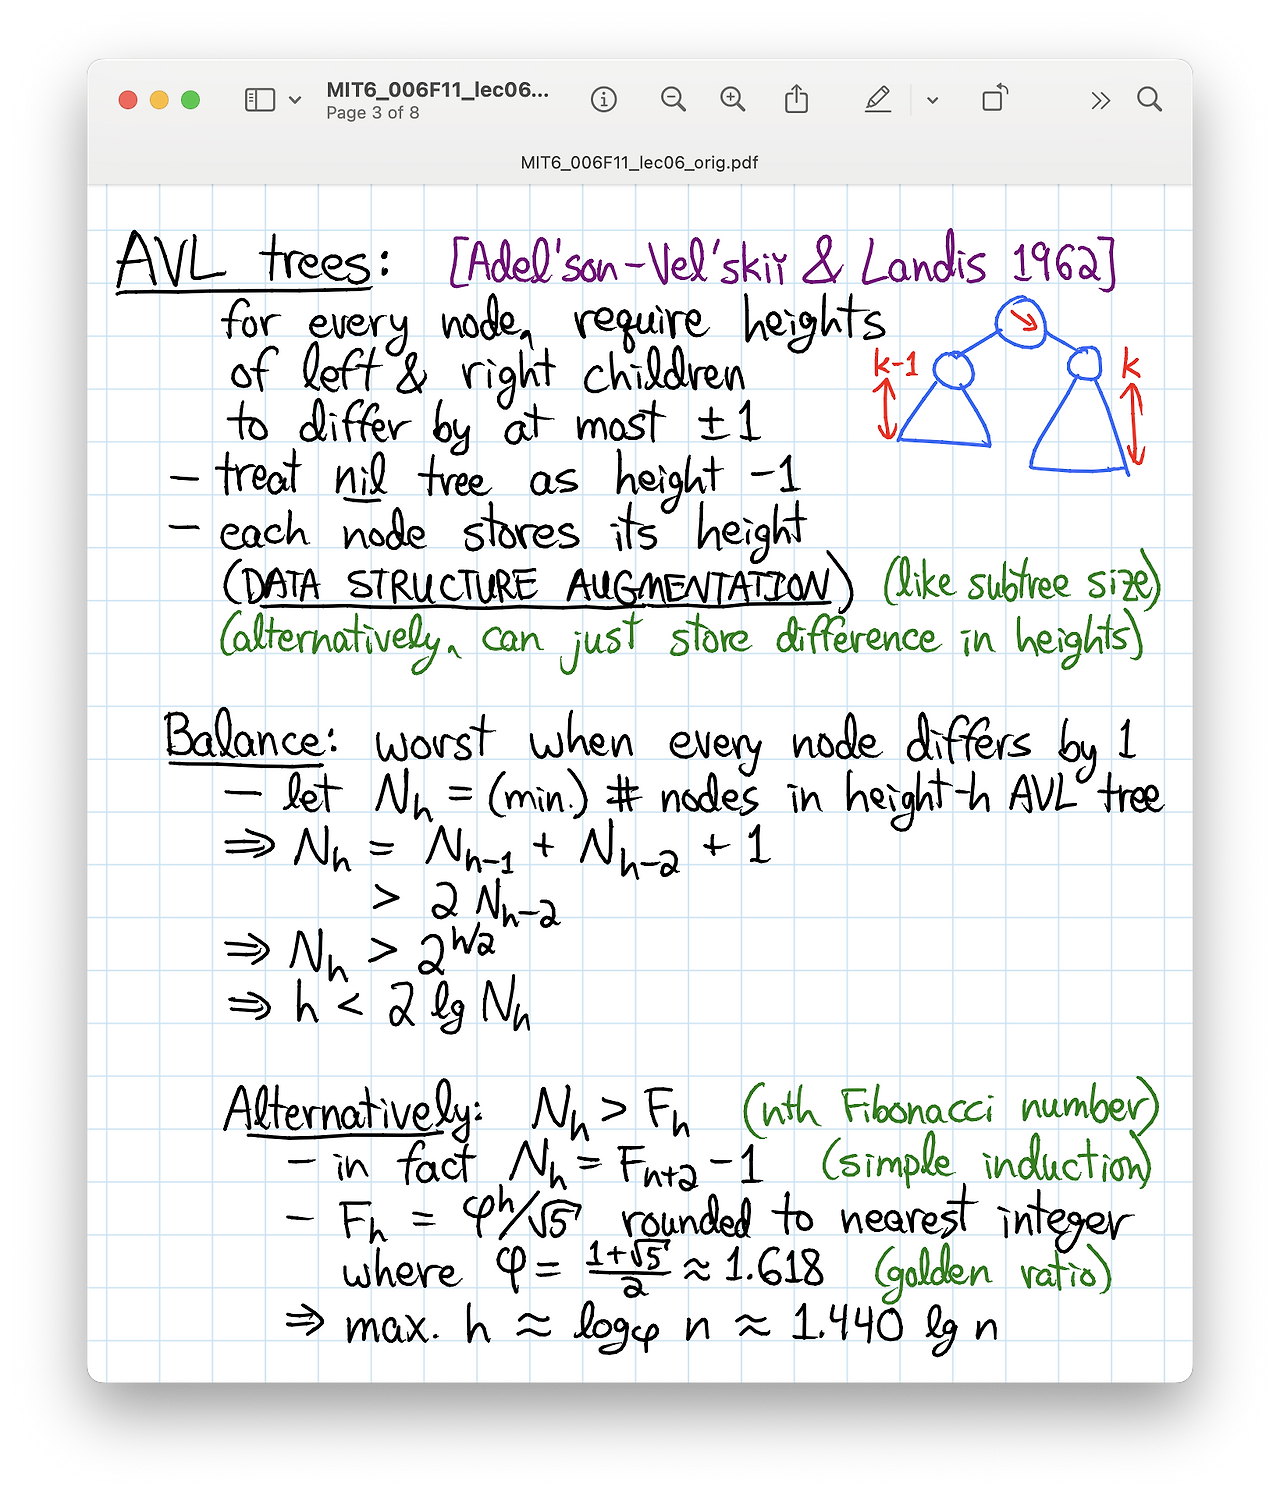 MIT6_006F11_lec06...
Page 3 of 8
MIT6_006F11_lec06_orig.pdf
AVL trees: [Adel'son-Vel'skiĭ & Landis 1962]
for every node, require heights
of left & right children
to differ by at most ±1
k-1 k
- treat nil tree as height -1
- each node stores its height
(DATA STRUCTURE AUGMENTATION) (like subtree size)
(alternatively, can just store difference in heights)
Balance: worst when every node differs by 1
- let N_h = (min.) # nodes in height-h AVL tree
⇒ N_h = N_{h-1} + N_{h-2} + 1
> 2 N_{h-2}
⇒ N_h > 2^{h/2}
⇒ h < 2 lg N_h
Alternatively: N_h > F_h (nth Fibonacci number)
- in fact N_h = F_{n+2} - 1 (simple induction)
- F_h = φ^h/√5 rounded to nearest integer
where φ = (1+√5)/2 ≈ 1.618 (golden ratio)
⇒ max. h ≈ log_φ n ≈ 1.440 lg n